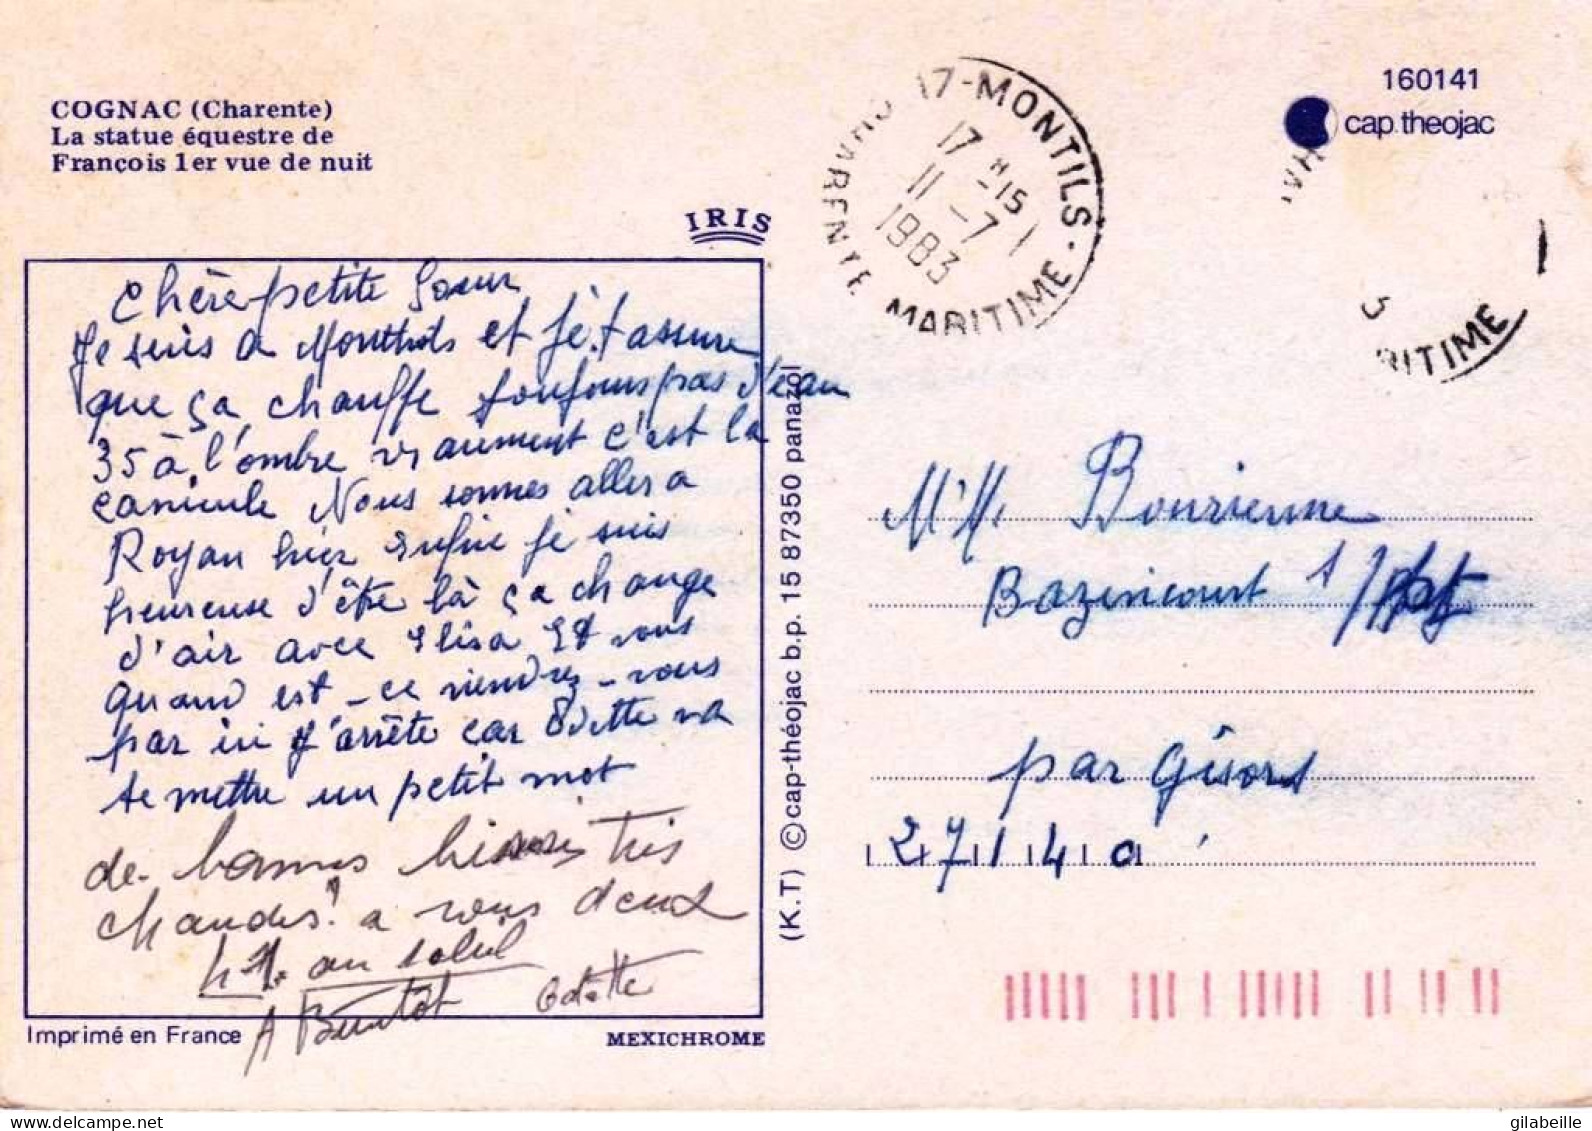 COGNAC (Charente)
La statue équestre de
François 1er vue de nuit
IRIS
17-MONTILS
17 H 15
11 - 7
1983
CHARENTE MARITIME
160141
cap.theojac
RITIME
Chère petite Soeur
Je suis a et je t assure
que ça chauffe toujours pas d'eau
35 à l'ombre vraiment c'est la
canicule Nous sommes aller a
Royan hier enfin je suis
heureuse d'être là ça change
d'air avec Elisa Et vous
quand est-ce viendrez-vous
par ici J'arrête car Odette va
te mettre un petit mot
de bonnes bises très
chaudes! a vous deux
au soleil
A Bientôt Odette
Imprimé en France
MEXICHROME
(K.T) © cap-théojac b.p. 15 87350 panazol
Bourienne
Bazincourt s/
par Gisors
27140
gilabeille